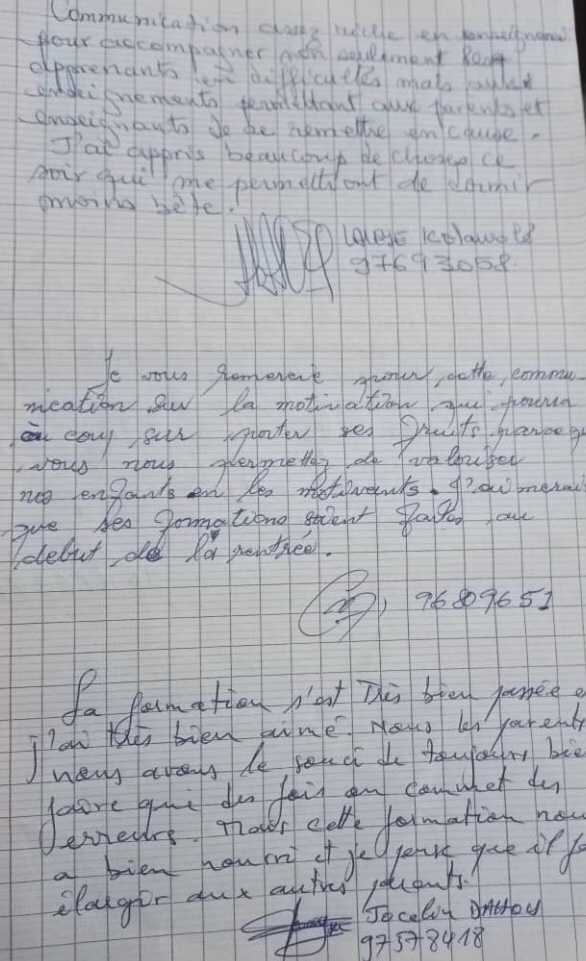 Communication assez riche en enseignement
pour accompagner non seulement les
apprenants en difficultés mais aussi
enseignements permettant aux parents et
enseignants de se remettre en cause.
J'ai appris beaucoup de choses ce
soir qui me permettront de dormir
moins bête.
97693058
Je vous remercie pour cette commu-
nication sur la motivation qui pourra
à coup sur porter ses fruits parceque
vous nous permettez de valoriser
nos enfants en les motivants. J'aimerai
que ses formations soient faites au
debut de la rentrée.
96809651
La formation s'est très bien passée e
j'ai très bien aimé. Nous les parents
nous avons le souci de toujours bie
faire qui des fois on commet des
erreurs. Mais cette formation nou
a bien nourri et je pense que il fa
élargir aux autres parents.
Jocelin
97578418